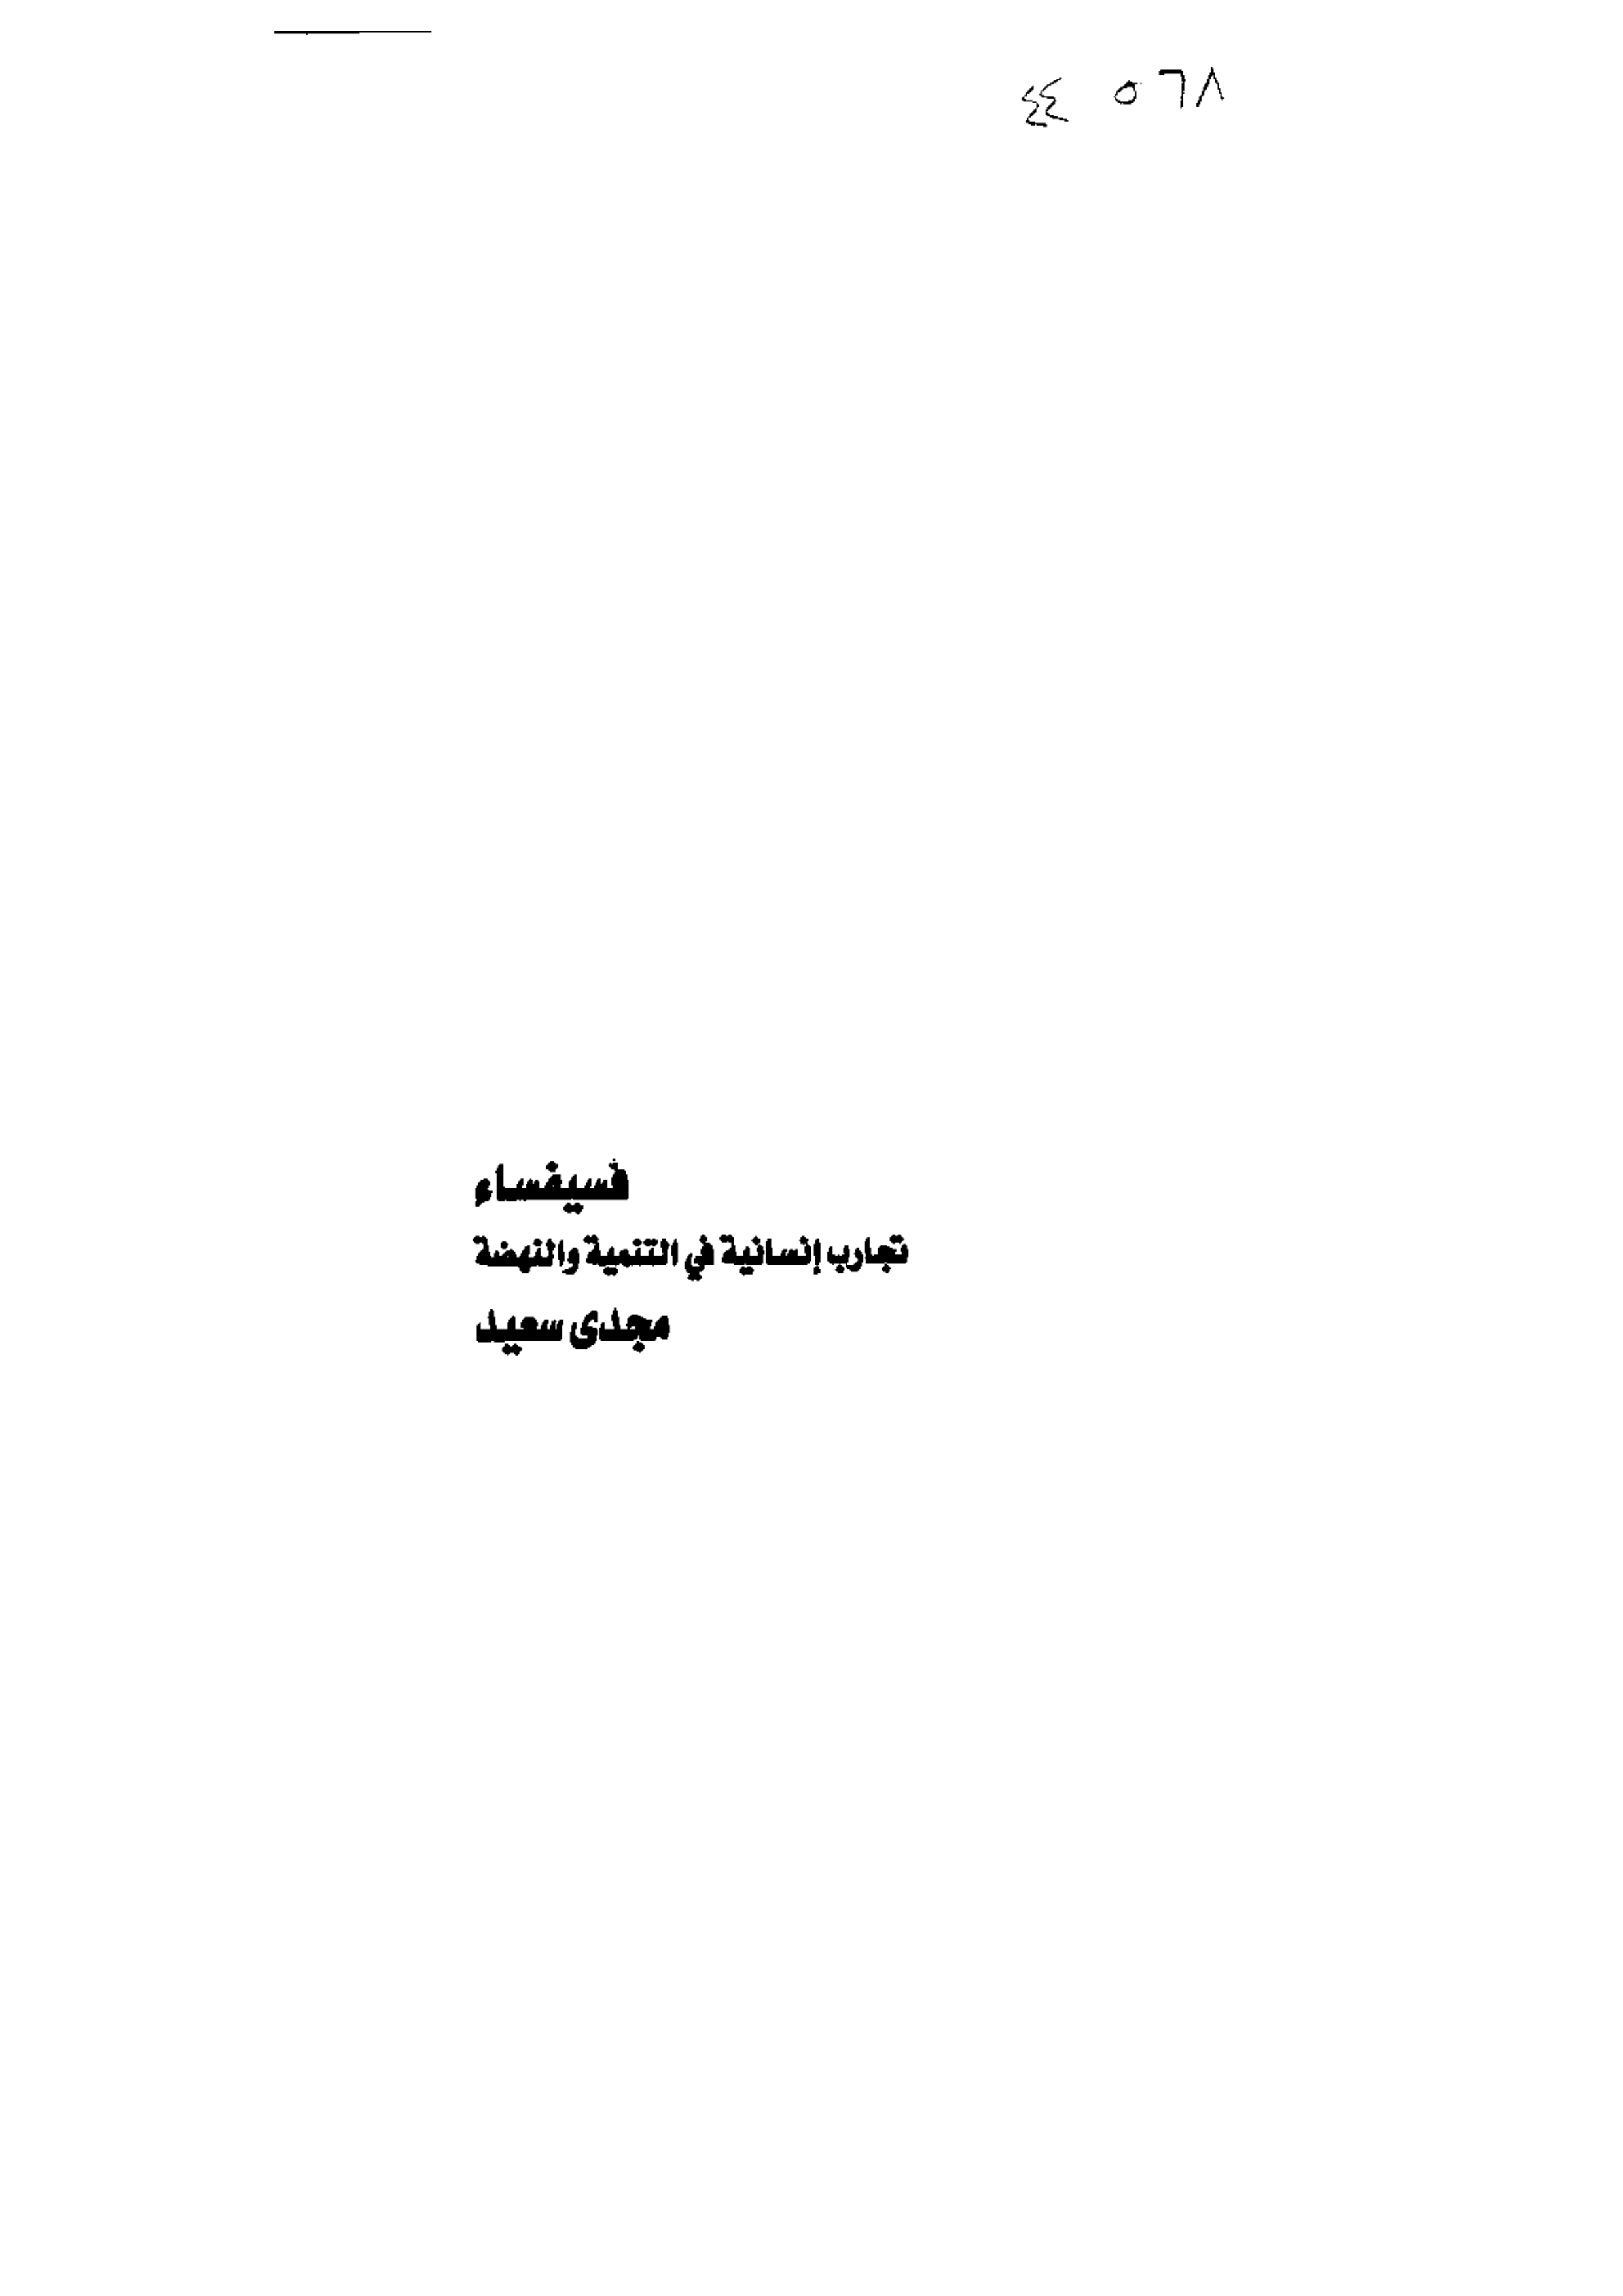 ٤٤ ٥٦٨
فسيفساء
تجارب إنسانية في التنمية والنهضة
مجدى سعيد